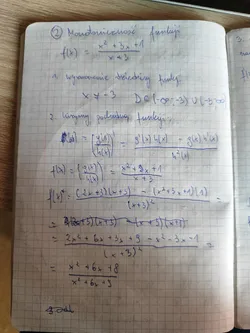 ② Monotoniczność funkcji
f(x) = (x² + 3x + 1)/(x + 3)
1. wyznaczenie dziedziny funkcji
x ≠ -3   D ∈ (-∞; -3) ∪ (-3; ∞)
2. Liczymy pochodną funkcji:
f'(x) = [g(x)/h(x)]' = (g'(x) h(x) - g(x) h'(x))/h²(x)
f(x) = [g(x)/h(x)] = (x² + 3x + 1)/(x + 3)
f(x)' = ((2x + 3)(x + 3) - (x² + 3x + 1)(1))/(x + 3)² =
= (2x² + 6x + 3x + 9 - x² - 3x - 1)/(x + 3)² =
= (x² + 6x + 8)/(x² + 6x + 9)
3.